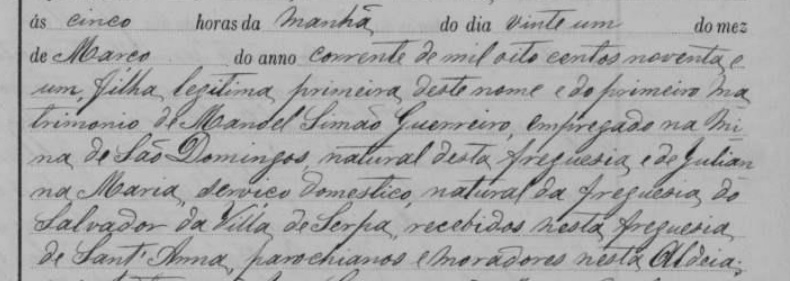 ás cinco horas da manhã do dia vinte um do mez
de Março do anno corrente de mil oito centos noventa e
um, filha legitima, primeira deste nome e do primeiro ma
trimonio de Manoel Simão Guerreiro, empregado na Mi
na de São Domingos, natural desta freguesia e de Julian
na Maria, serviço domestico, natural da freguesia do
Salvador da Villa de Serpa, recebidos nesta freguesia
de Sant'Anna, parochianos e moradores nesta Aldeia;